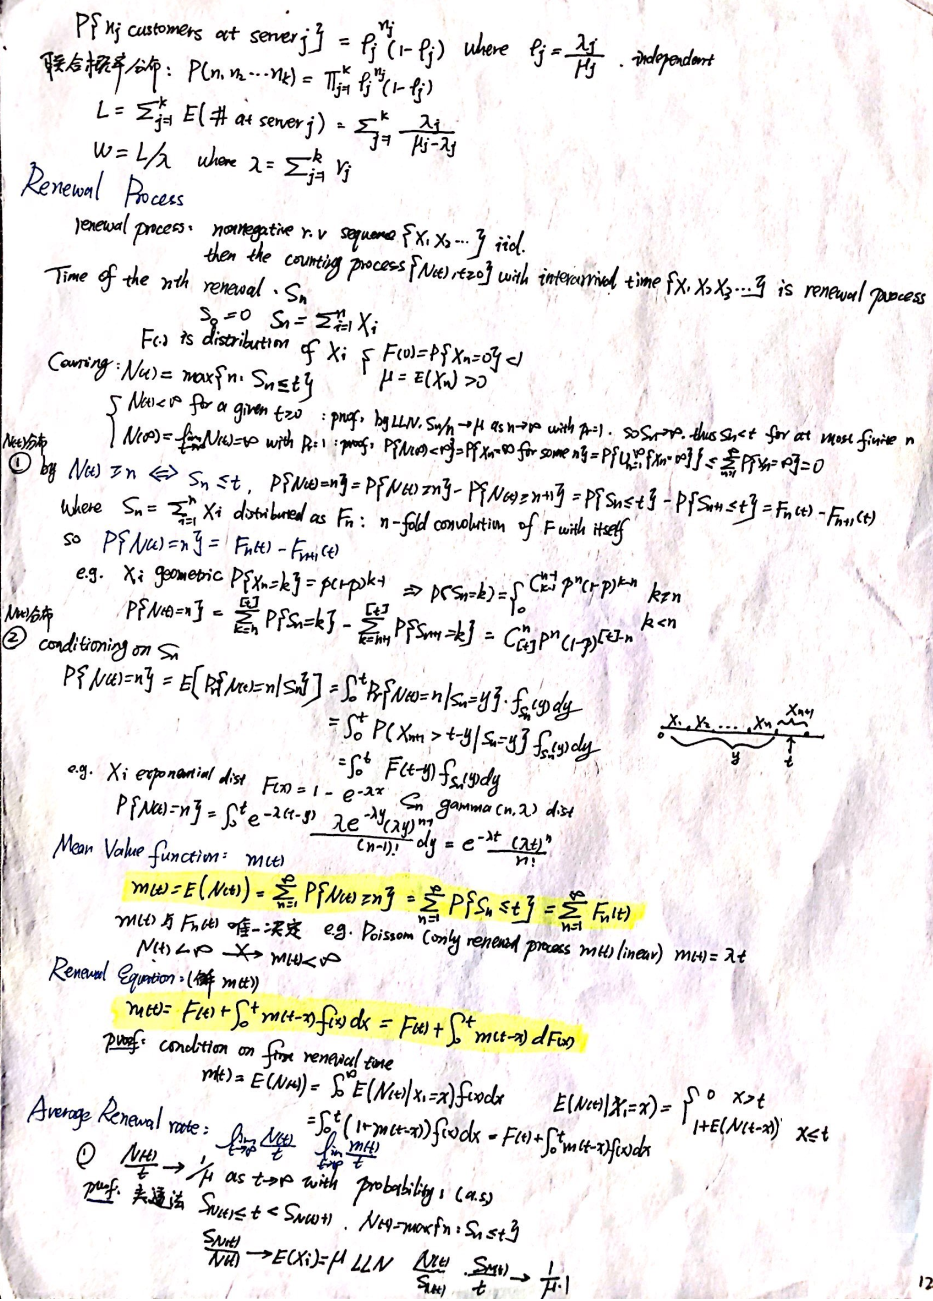 P{nj customers at server j} = ρj^nj (1-ρj) where ρj = λj/μj . independent
联合概率分布: P(n1, n2 ... nk) = Π_{j=1}^k ρj^nj (1-ρj)
L = Σ_{j=1}^k E(# at server j) = Σ_{j=1}^k λj/(μj-λj)
W = L/λ where λ = Σ_{j=1}^k rj
Renewal Process
renewal process: nonnegative r.v sequence {X1 X2 ...} iid.
then the counting process {N(t), t≥0} with interarrival time {X1 X2 X3 ...} is renewal process
Time of the nth renewal . Sn
S0 = 0 Sn = Σ_{i=1}^n Xi
F(.) is distribution of Xi { F(0)=P{Xn=0}<1
μ = E(Xn) >0
Counting: N(t) = max{n: Sn≤t}
{ N(t)<∞ for a given t≥0 : proof, by LLN. Sn/n→μ as n→∞ with Pr=1. so Sn→∞. thus Sn<t for at most finite n
N(∞) = lim N(t)=∞ with Pr=1 : proof, P{N(∞)<∞}=P{Xn=∞ for some n}=P{∪_{n=1}^∞{Xn=∞}} ≤ Σ_{n=1}^∞ P{Xn=∞}=0
N(t)分布
① by N(t) ≥n ⇔ Sn ≤t, P{N(t)=n}=P{N(t)≥n}-P{N(t)≥n+1}=P{Sn≤t}-P{Sn+1≤t}=Fn(t)-Fn+1(t)
where Sn = Σ_{i=1}^n Xi distributed as Fn : n-fold convolution of F with itself
so P{N(t)=n} = Fn(t)-Fn+1(t)
e.g. Xi geometric P{Xn=k}=p(1-p)^{k-1} ⇒ P(Sn=k)={ C_{k-1}^{n-1} p^n(1-p)^{k-n} k≥n
0 k<n
P{N(t)=n} = Σ_{k=n}^{[t]} P{Sn=k} - Σ_{k=n+1}^{[t]} P{Sn+1=k} = C_{[t]}^n p^n (1-p)^{[t]-n}
N(t)分布
② conditioning on Sn
P{N(t)=n} = E[Pr{N(t)=n|Sn}] = ∫_0^t Pr{N(t)=n|Sn=y}·f_{Sn}(y)dy
= ∫_0^t P(Xn+1 > t-y|Sn=y} f_{Sn}(y)dy
X1 X2 .... Xn Xn+1
0 y t
= ∫_0^t F(t-y) f_{Sn}(y)dy
e.g. Xi exponential dist F(x) = 1 - e^{-λx} Sn gamma (n,λ) dist
P{N(t)=n} = ∫_0^t e^{-λ(t-y)} λe^{-λy}(λy)^{n-1}/(n-1)! dy = e^{-λt} (λt)^n/n!
Mean Value function: m(t)
m(t) = E(N(t)) = Σ_{n=1}^∞ P{N(t) ≥n} = Σ_{n=1}^∞ P{Sn ≤t} = Σ_{n=1}^∞ Fn(t)
m(t) 与 Fn(t) 唯一决定 e.g. Poissom (only renewal process m(t) linear) m(t) = λt
N(t)<∞ m(t)<∞
Renewal Equation: (解 m(t))
m(t) = F(t) + ∫_0^t m(t-x)f(x)dx = F(t) + ∫_0^t m(t-x) dF(x)
proof: condition on first renewal time
m(t) = E(N(t)) = ∫_0^∞ E(N(t)|x1=x)f(x)dx E(N(t)|X1=x) = { 0 x>t
1+E(N(t-x)) x≤t
= ∫_0^t (1+m(t-x))f(x)dx = F(t)+∫_0^t m(t-x)f(x)dx
Average Renewal rate: lim_{t→∞} N(t)/t lim_{t→∞} m(t)/t
① N(t)/t → 1/μ as t→∞ with probability 1 (a.s)
proof. 夹逼法 S_{N(t)} ≤ t < S_{N(t)+1} . N(t)=max{n: Sn≤t}
S_{N(t)}/N(t) → E(Xi)=μ LLN N(t)/S_{N(t)} · S_{N(t)}/t → 1/μ·1
12